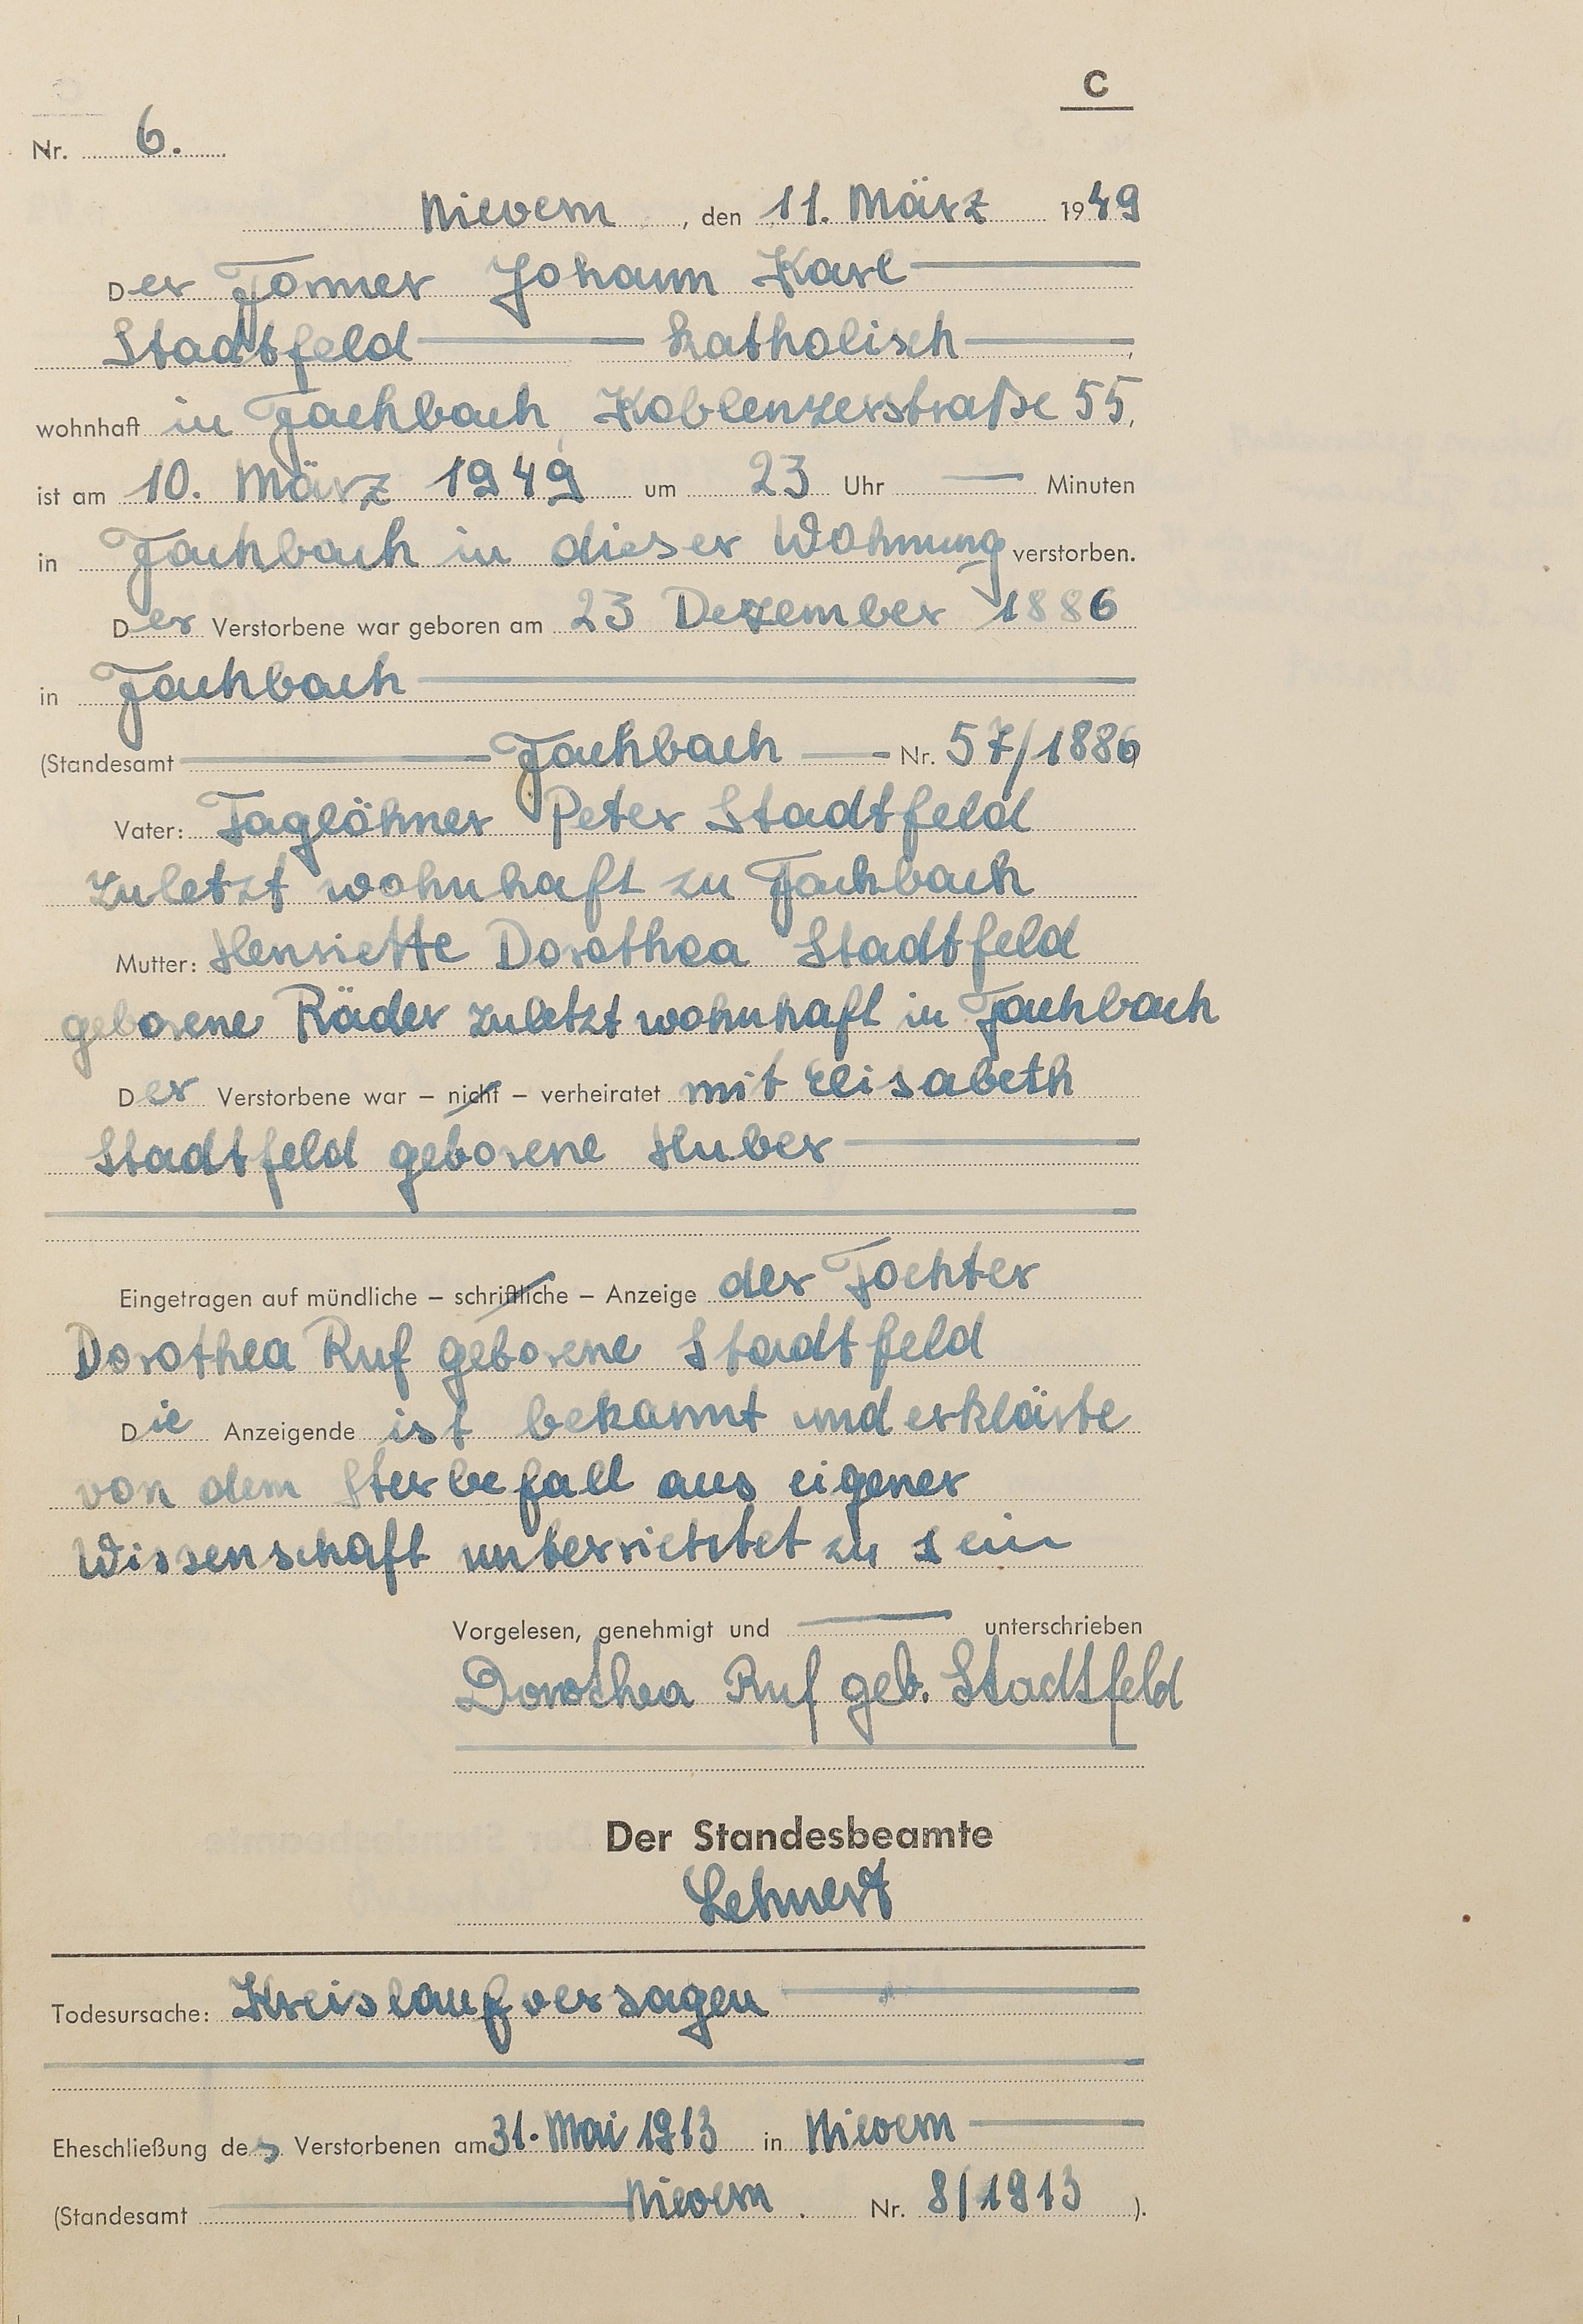 C
Nr. 6.
Nievern, den 11. März 1949
Der Former Johann Karl
Stadtfeld katholisch,
wohnhaft in Fachbach, Koblenzerstraße 55,
ist am 10. März 1949 um 23 Uhr — Minuten
in Fachbach in dieser Wohnung verstorben.
Der Verstorbene war geboren am 23 Dezember 1886
in Fachbach
(Standesamt Fachbach — Nr. 57/1886)
Vater: Taglöhner Peter Stadtfeld
zuletzt wohnhaft zu Fachbach
Mutter: Henriette Dorothea Stadtfeld
geborene Räder zuletzt wohnhaft in Fachbach
Der Verstorbene war – nicht – verheiratet mit Elisabeth
Stadtfeld geborene Huber
Eingetragen auf mündliche – schriftliche – Anzeige der Tochter
Dorothea Ruf geborene Stadtfeld
Die Anzeigende ist bekannt und erklärte
von dem Sterbefall aus eigener
Wissenschaft unterrichtet zu sein
Vorgelesen, genehmigt und — unterschrieben
Dorothea Ruf geb. Stadtfeld
Der Standesbeamte
Lehnert
Todesursache: Kreislaufversagen
Eheschließung des Verstorbenen am 31. Mai 1913 in Nievern
(Standesamt Nievern. Nr. 8/1913).